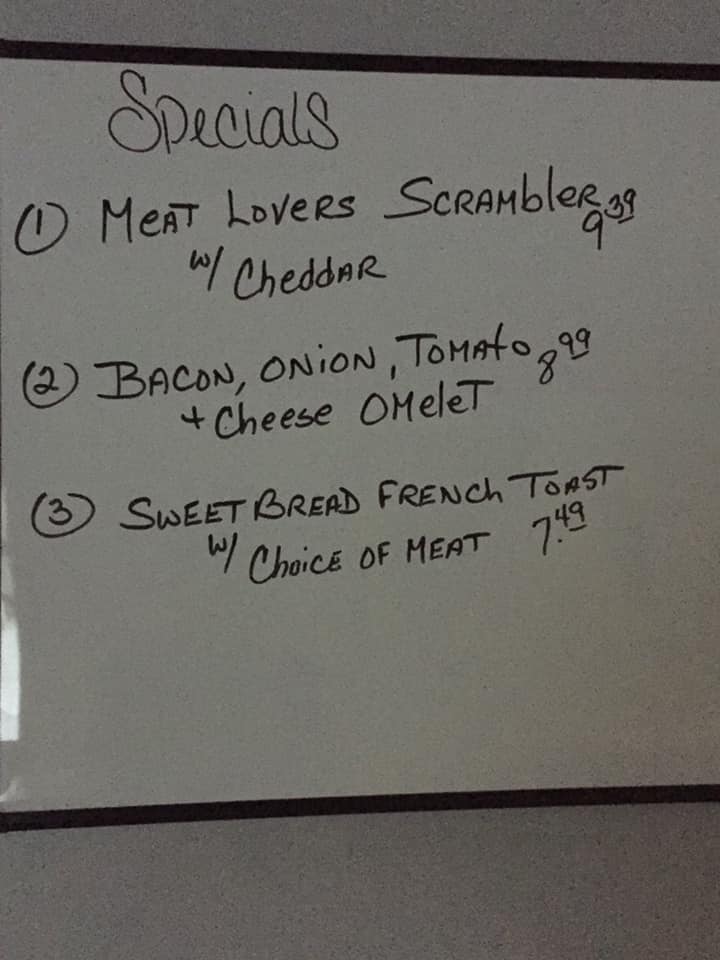 Specials
(1) Meat Lovers Scrambler 9.39
w/ Cheddar
(2) Bacon, Onion, Tomato 8.99
+ Cheese Omelet
(3) Sweet Bread French Toast
w/ Choice of Meat 7.49